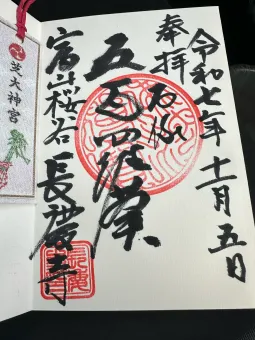 令和七年十一月五日
奉拝
五百羅漢
富山桜谷長慶寺
芝大神宮